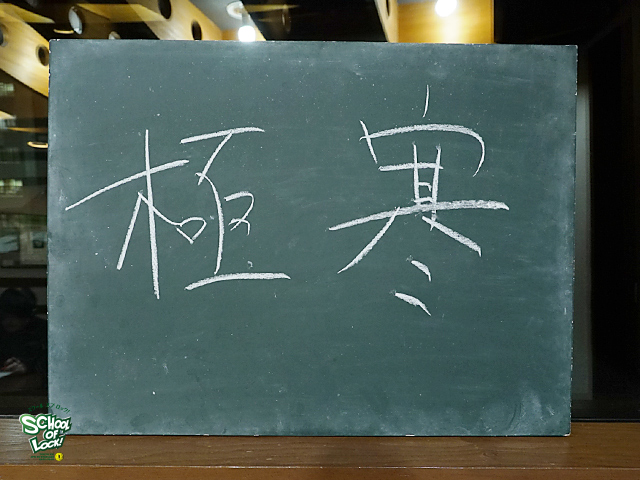 極寒
SCHOOL
OF
LOCK!